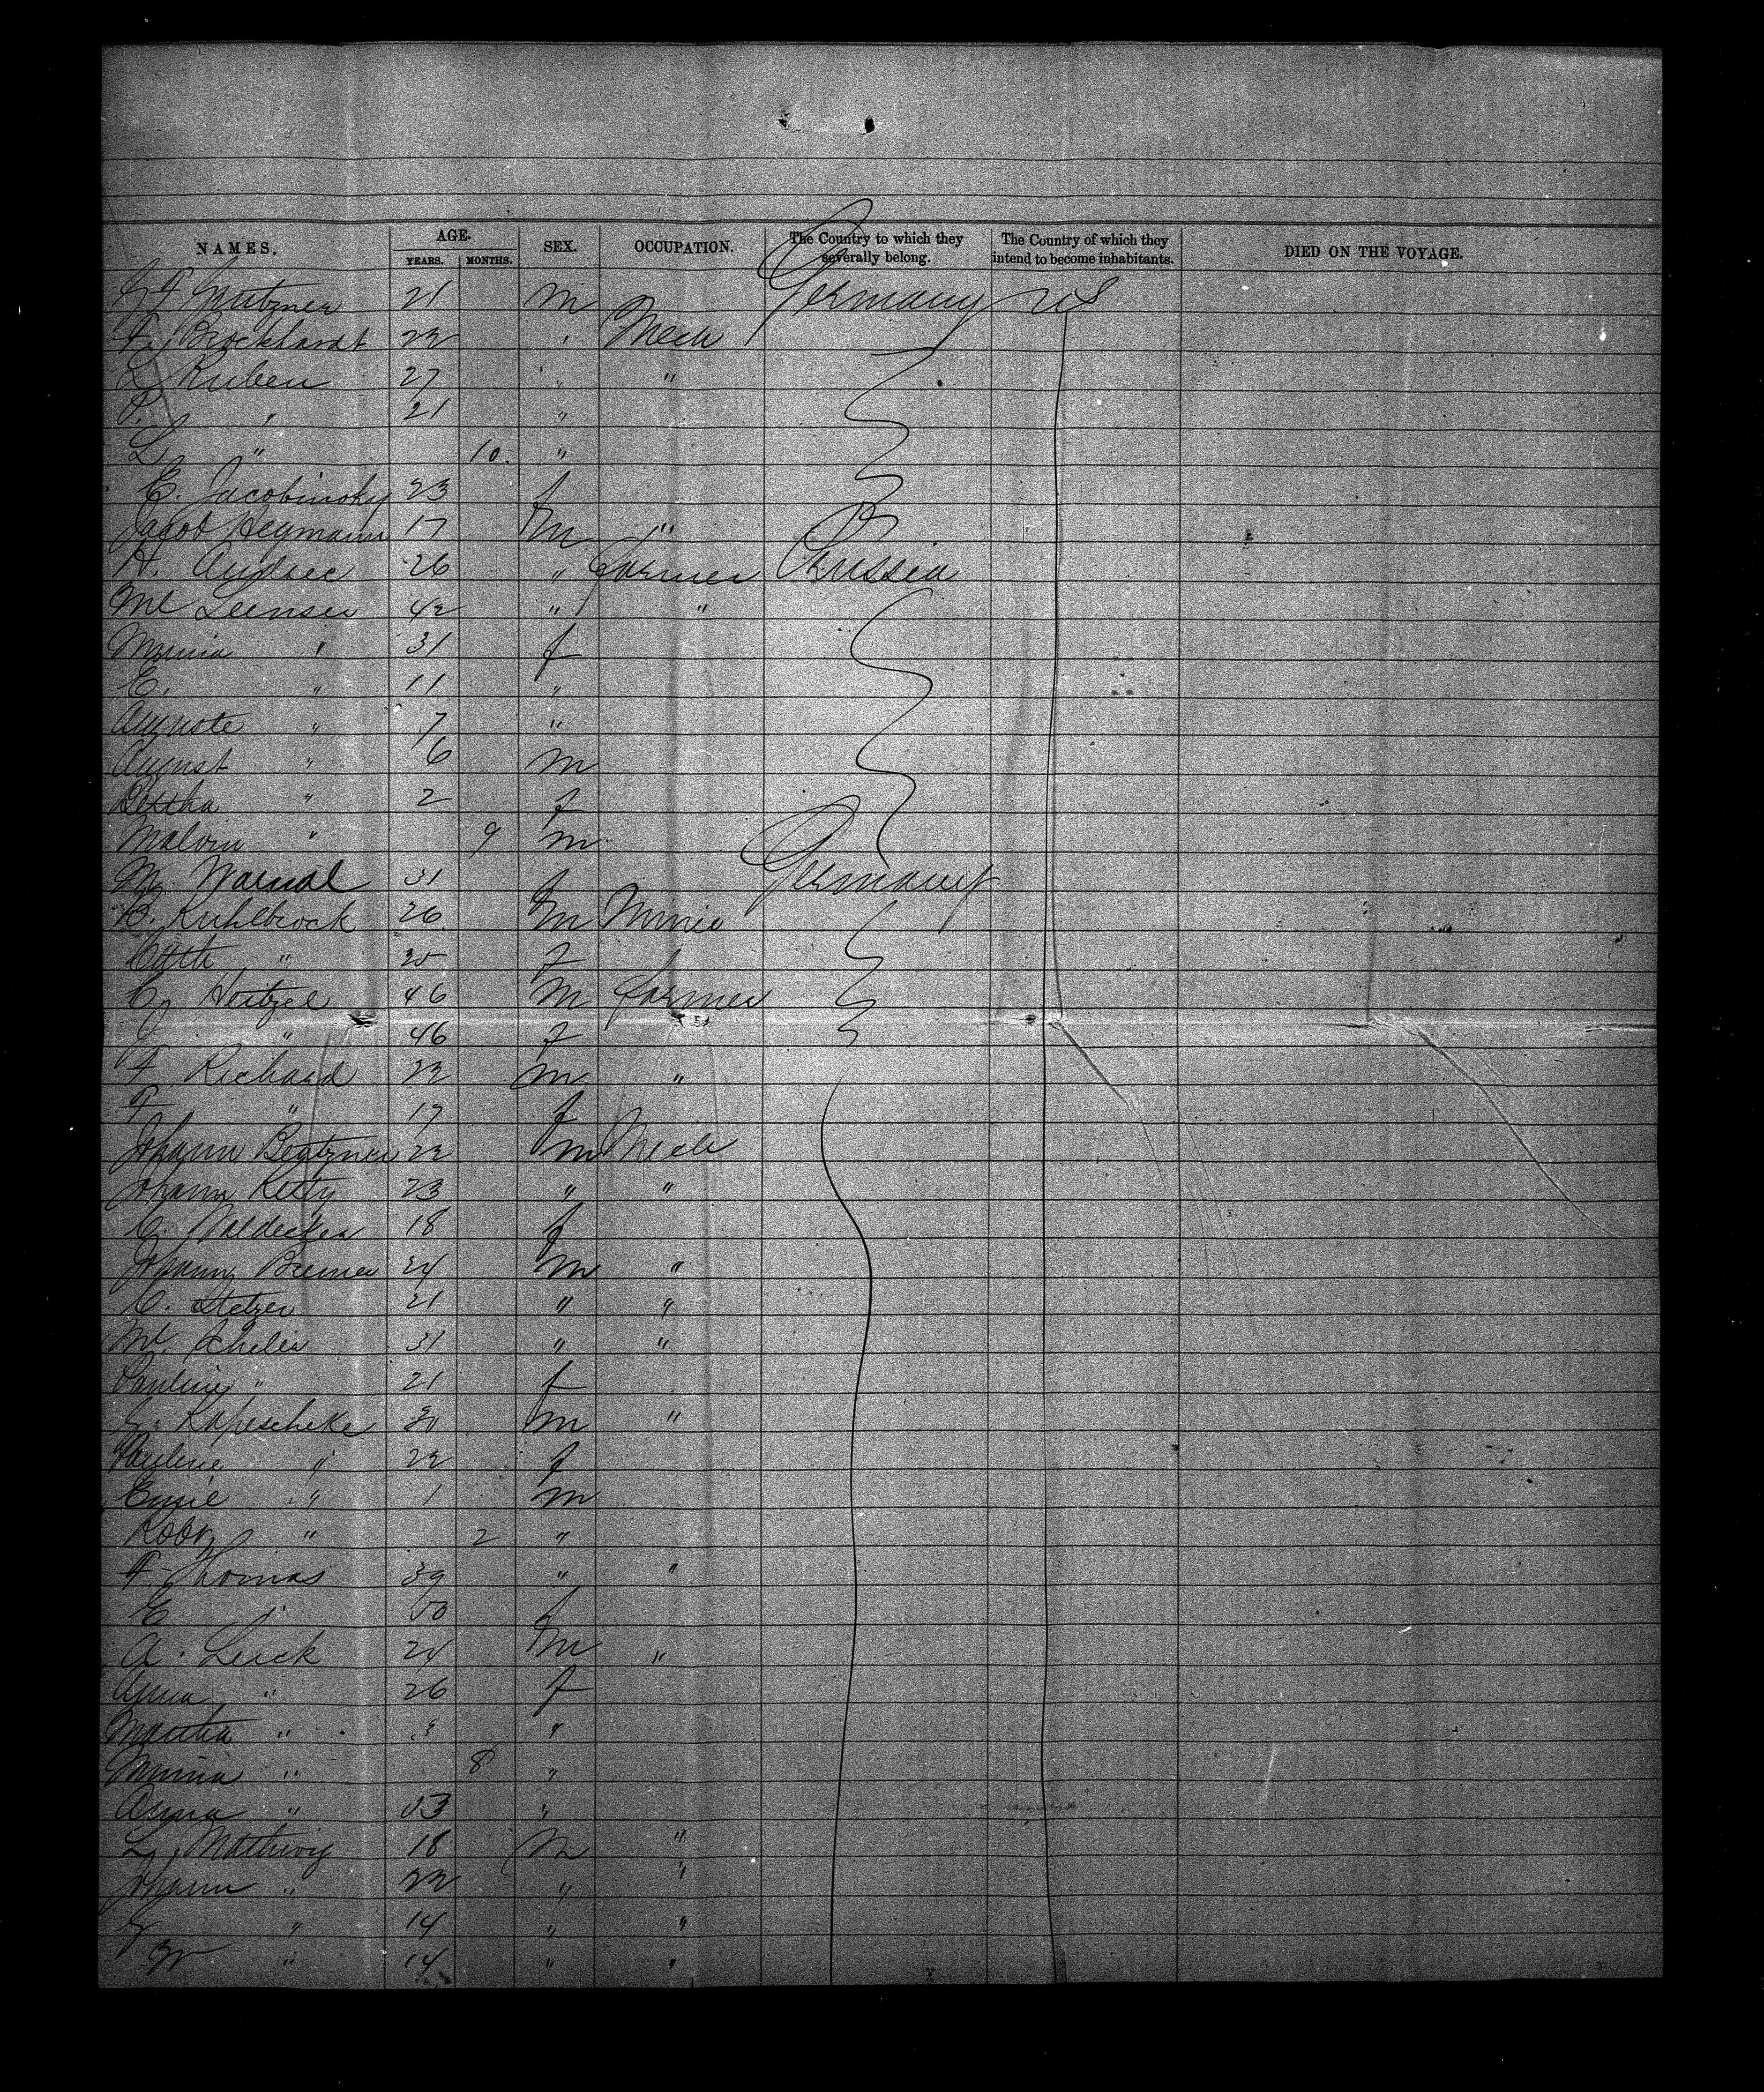 NAMES. AGE. YEARS. MONTHS. SEX. OCCUPATION. The Country to which they severally belong. The Country of which they intend to become inhabitants. DIED ON THE VOYAGE.
21 m Germany US
Brockhardt 22 " Mech
L Ruben 27 " "
P. " 21 "
L " 10. "
E. Jacobinsky 23 f
Jacob Heymann 17 m "
H. Andree 26 " Farmer Prussia
42 " "
Minna " 31 f
E. " 11 "
Auguste " 7 "
August " 6 m
Bertha " 2 f
Malvin " 9 m
M. 31 f Germany
B. Kuhlbrock 26 m
Cath " f
C. Hertzel 46 m Farmer
C " 46 f
F Richard 22 m "
F " 17 f
Johann 22 m Mech
Johann 23 " "
C. Waldecker 18 f
Johann 24 m "
C. Stelzer 21 " "
31 " "
Pauline " 21 f
m "
Pauline " 22 f
Emil " 1 m
Rob " 2 "
F Thomas 39 " "
E " f
A. Luck 24 m "
Anna " 26 f
Martha " 3 "
Minna " 8 "
Anna " "
L. Mathwig 18 m "
Johann " 22 " "
" 14 " "
" 14 " "